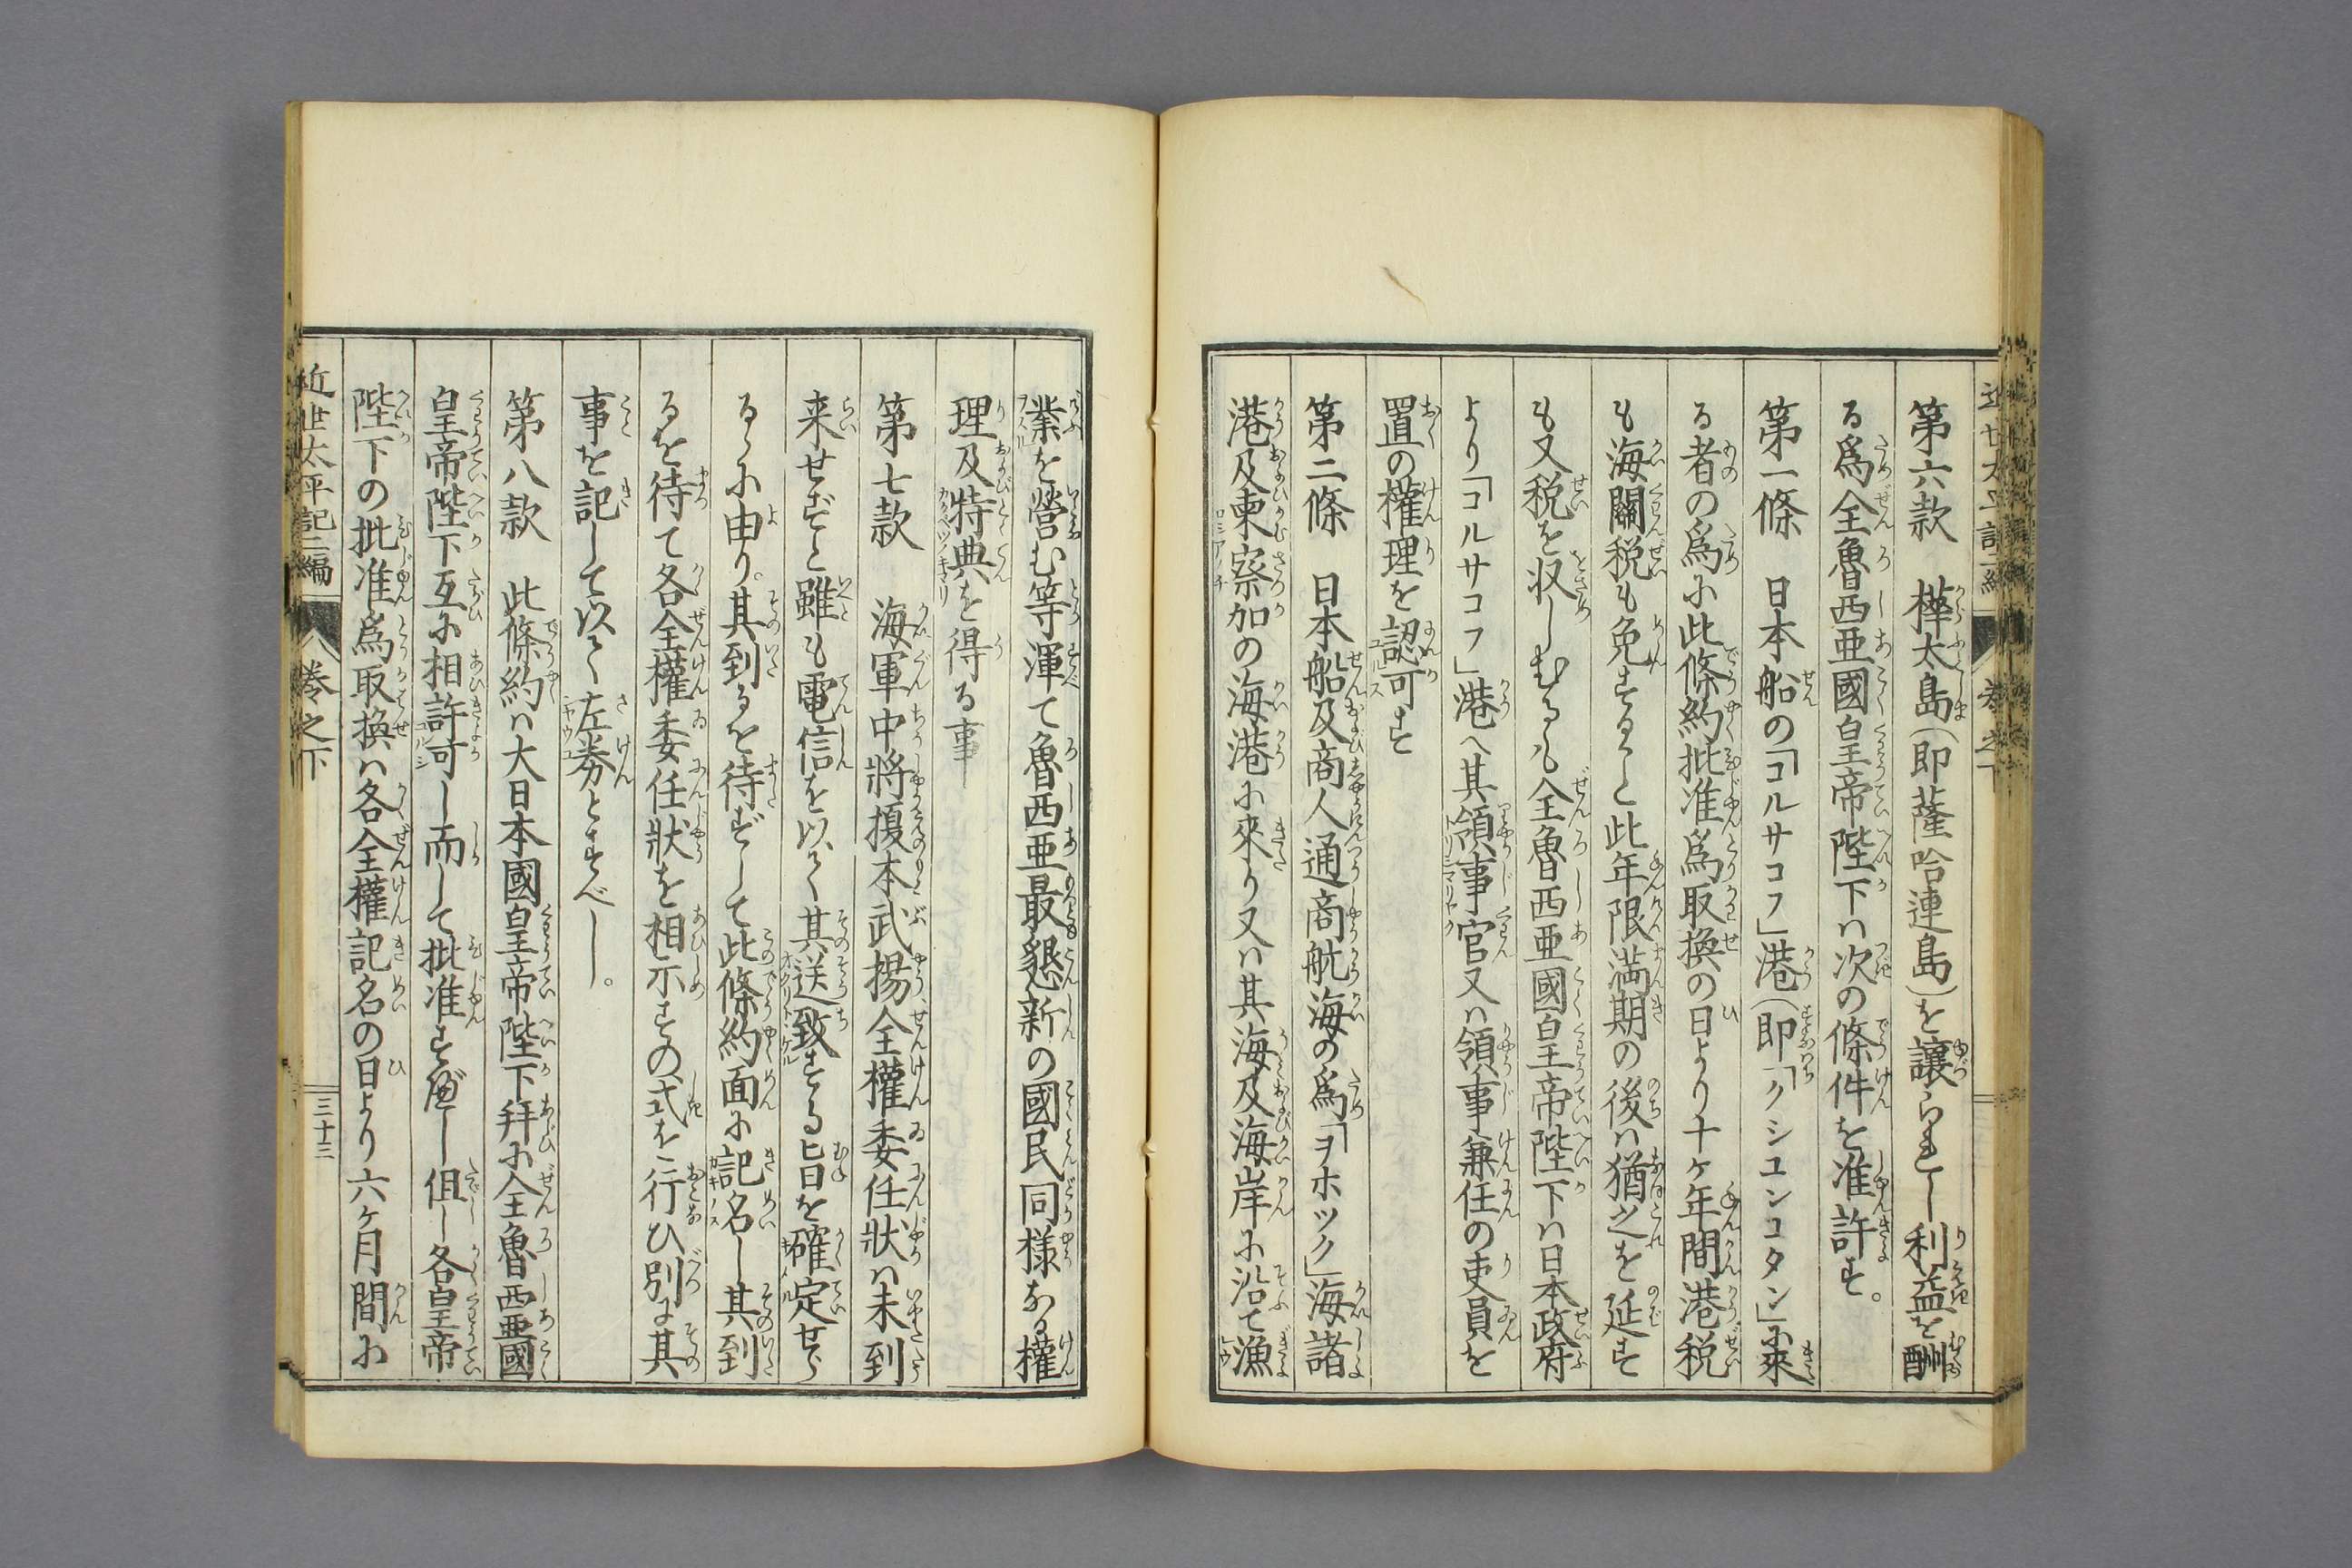 第六款　樺太島(即薩哈連島)を讓られし利益を酬
る爲全魯西亜國皇帝陛下ハ次の條件を准許す。
第一條　日本船の「コルサコフ」港(即「クシユンコタン」に來
る者の爲に此條約批准爲取換の日より十ケ年間港税
も海關税も免ずること此年限満期の後ハ猶之を延す
も又税を収しむるも全魯西亜國皇帝陛下ハ日本政府
より「コルサコフ」港へ其領事官又ハ領事兼任の吏員を
置の權理を認可す
第二條　日本船及商人通商航海の爲「ヲホツク」海諸
港及柬察加の海港に來り又ハ其海及海岸に沿て漁
業を營む等渾て魯西亜最懇新の國民同様なる權
理及特典を得る事
第七款　海軍中將榎本武揚全權委任狀ハ未到
来せずと雖も電信を以て其送致する旨を確定せら
るゝに由り。其到るを待ずして此條約面に記名し其到
るを待て各全權委任狀を相示すの式を行ひ別に其
事を記して以て左券とすべし。
第八款　此條約ハ大日本國皇帝陛下并に全魯西亜國
皇帝陛下互に相許可し而して批准すべし但し各皇帝
陛下の批准爲取換ハ各全權記名の日より六ケ月間に
近世太平記二編　巻之下　三十三